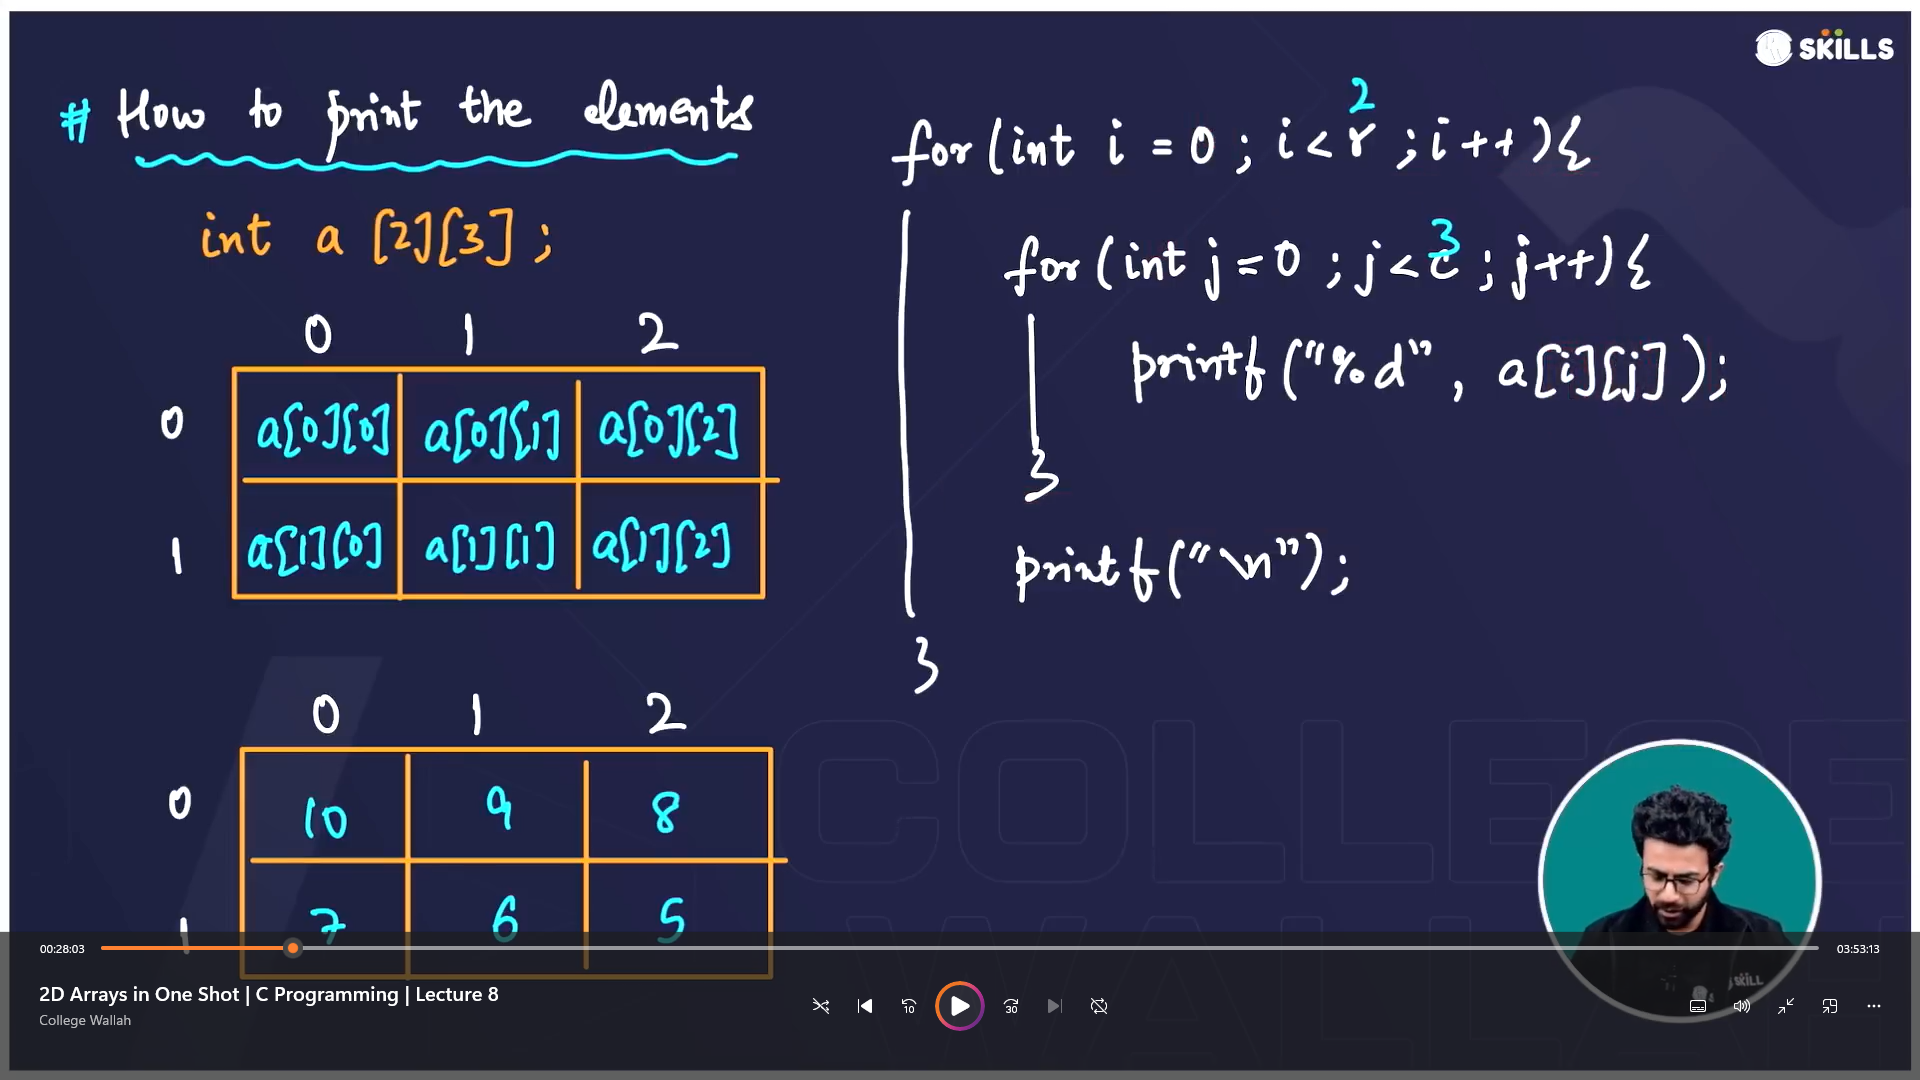 SKILLS
# How to print the elements
int a [2][3] ;
0 1 2
0 a[0][0] a[0][1] a[0][2]
1 a[1][0] a[1][1] a[1][2]
0 1 2
0 10 9 8
1 7 6 5
2
for (int i = 0 ; i < r ; i++){
3
for (int j = 0 ; j < c ; j++){
printf ("%d" , a[i][j] );
}
printf ("\n");
}
COLLEGE
WALLAH
SKILL
00:28:03
03:53:13
2D Arrays in One Shot | C Programming | Lecture 8
College Wallah
10
30